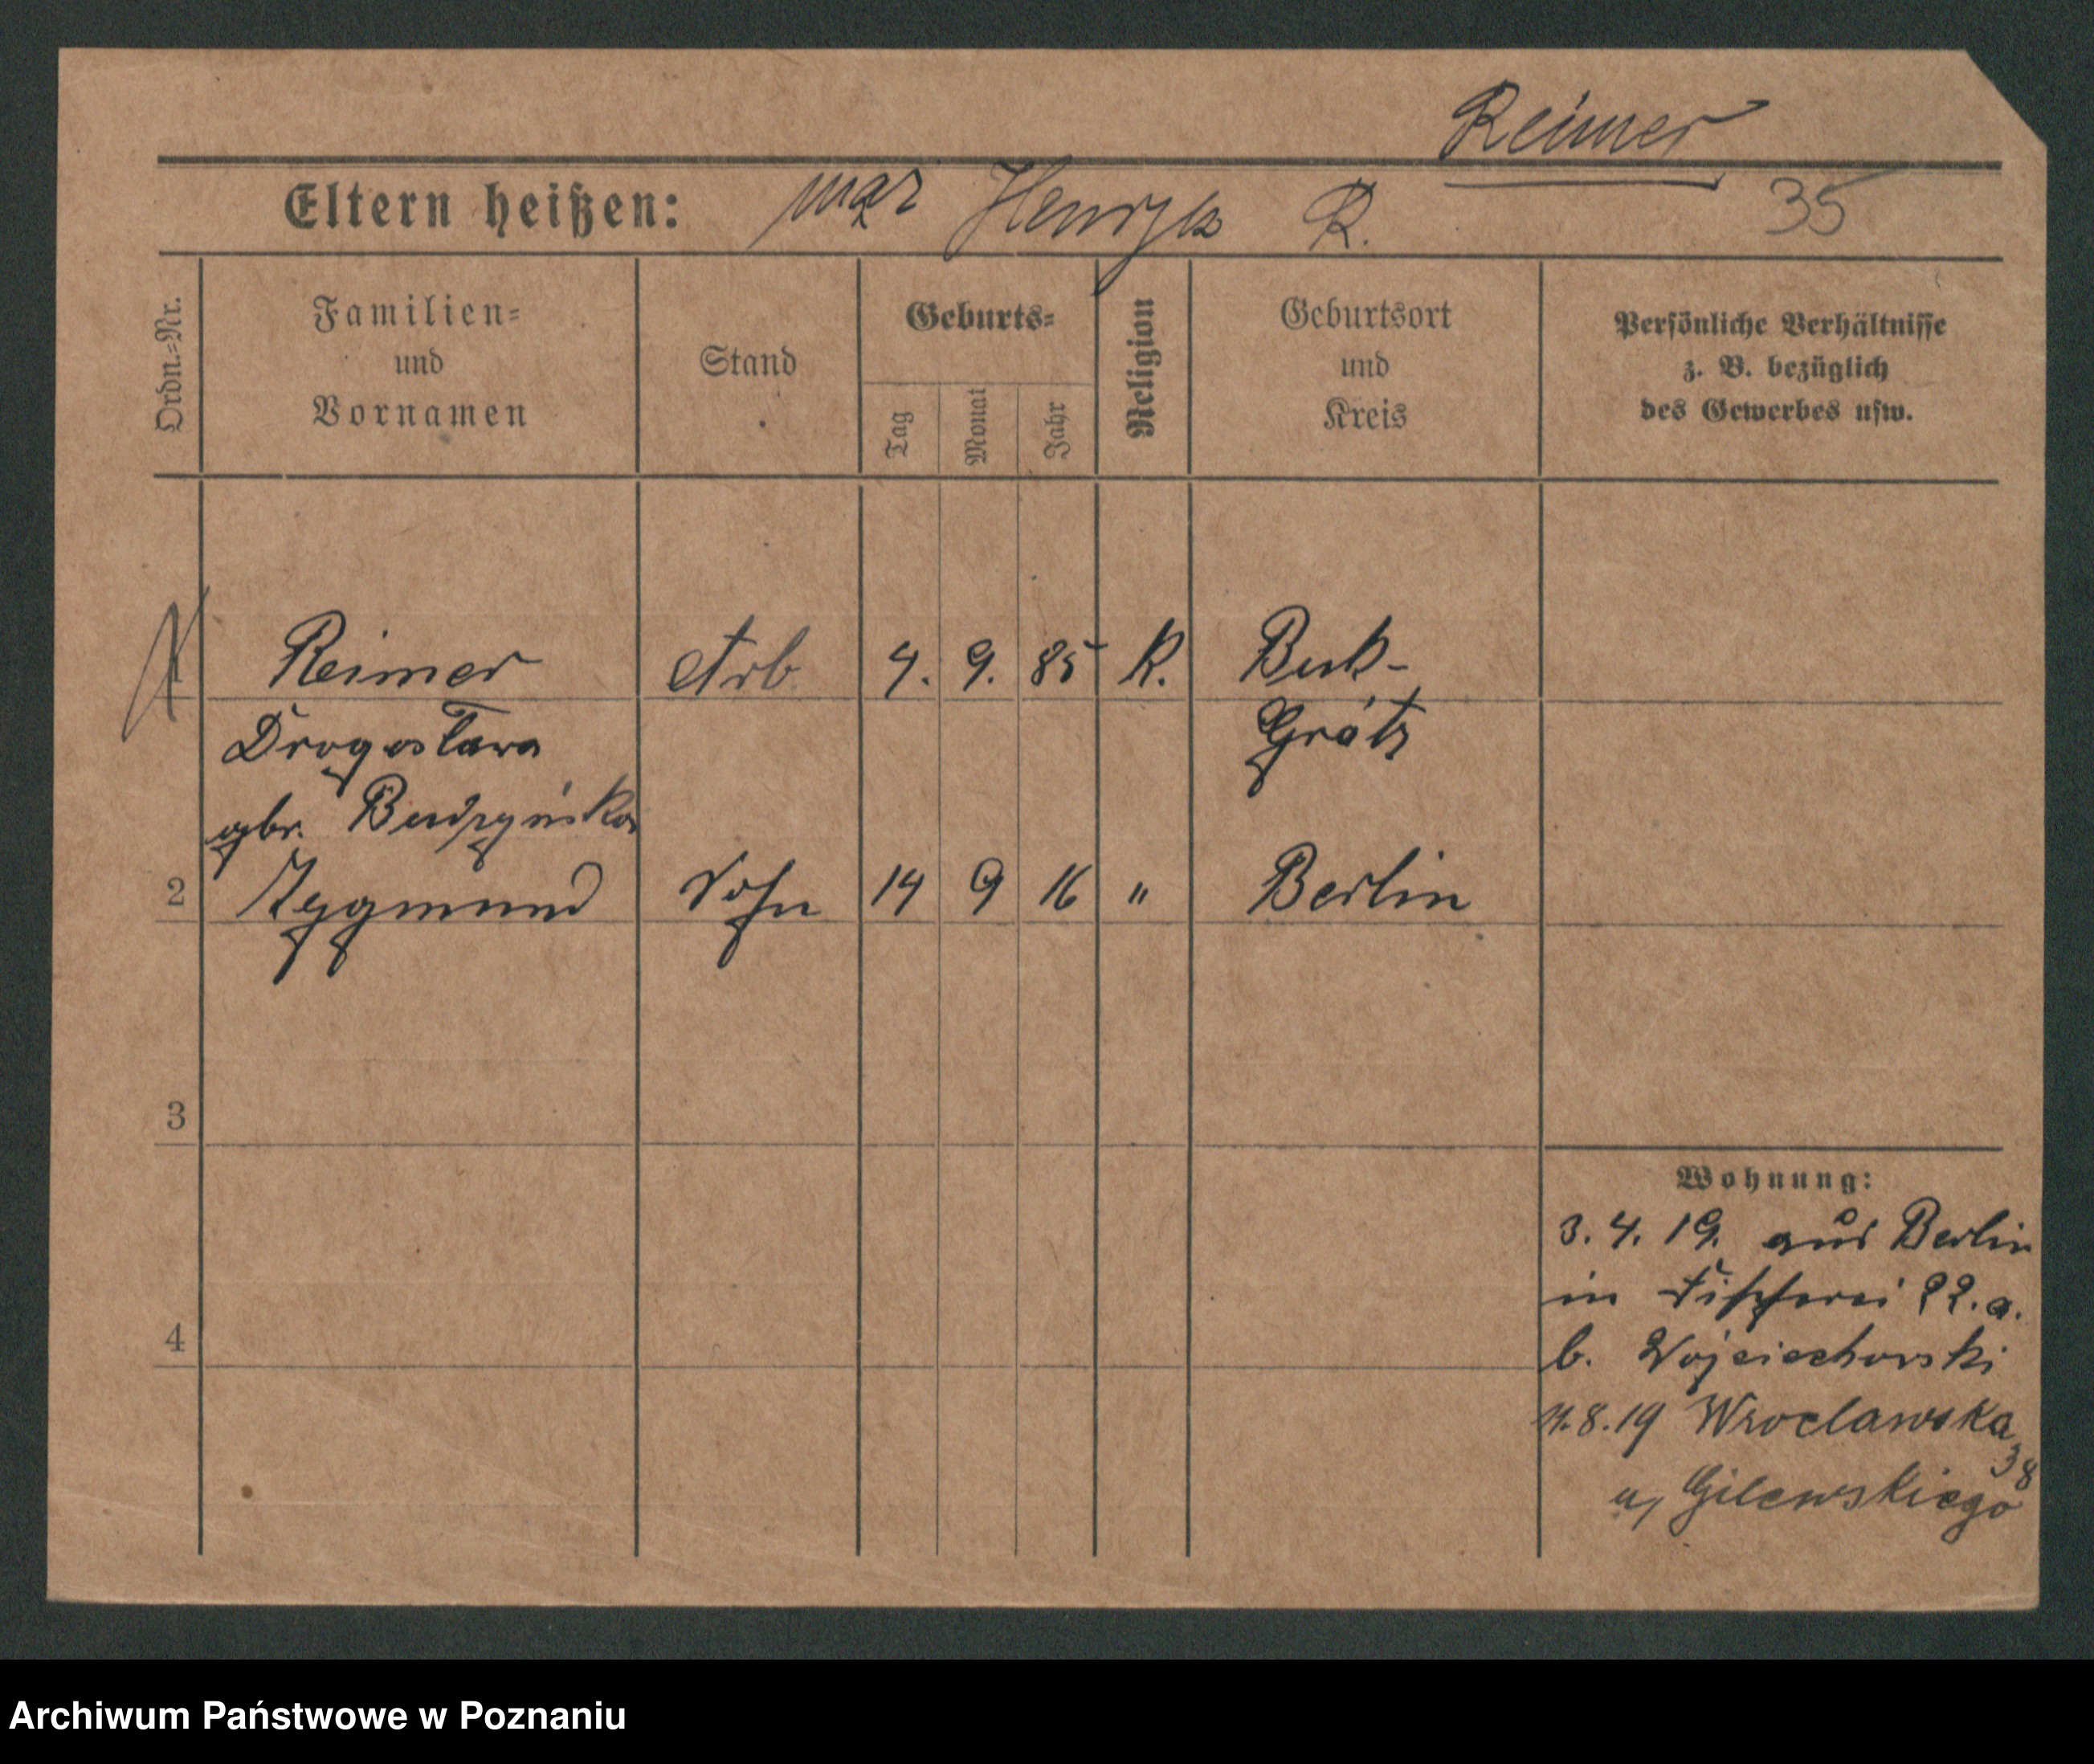 Reimer
Eltern heißen: mąż Henryk R. 35
Ordn.-Nr.
Familien-
und
Vornamen
Stand
Geburts-
Tag
Monat
Jahr
Religion
Geburtsort
und
Kreis
Persönliche Verhältnisse
z. B. bezüglich
des Gewerbes usw.
1 Reimer Arb 4. 9. 85 K. Buk-
Drogosława Grätz
gbr. Budzyńska
2 Zygmund Sohn 14 9 16 " Berlin
3
4
Wohnung:
3. 4. 19. aus Berlin
in Fischerei 22. a.
b. Wojciechowski
11.8.19 Wroclawska
38
u, Gilewskiego
Archiwum Państwowe w Poznaniu